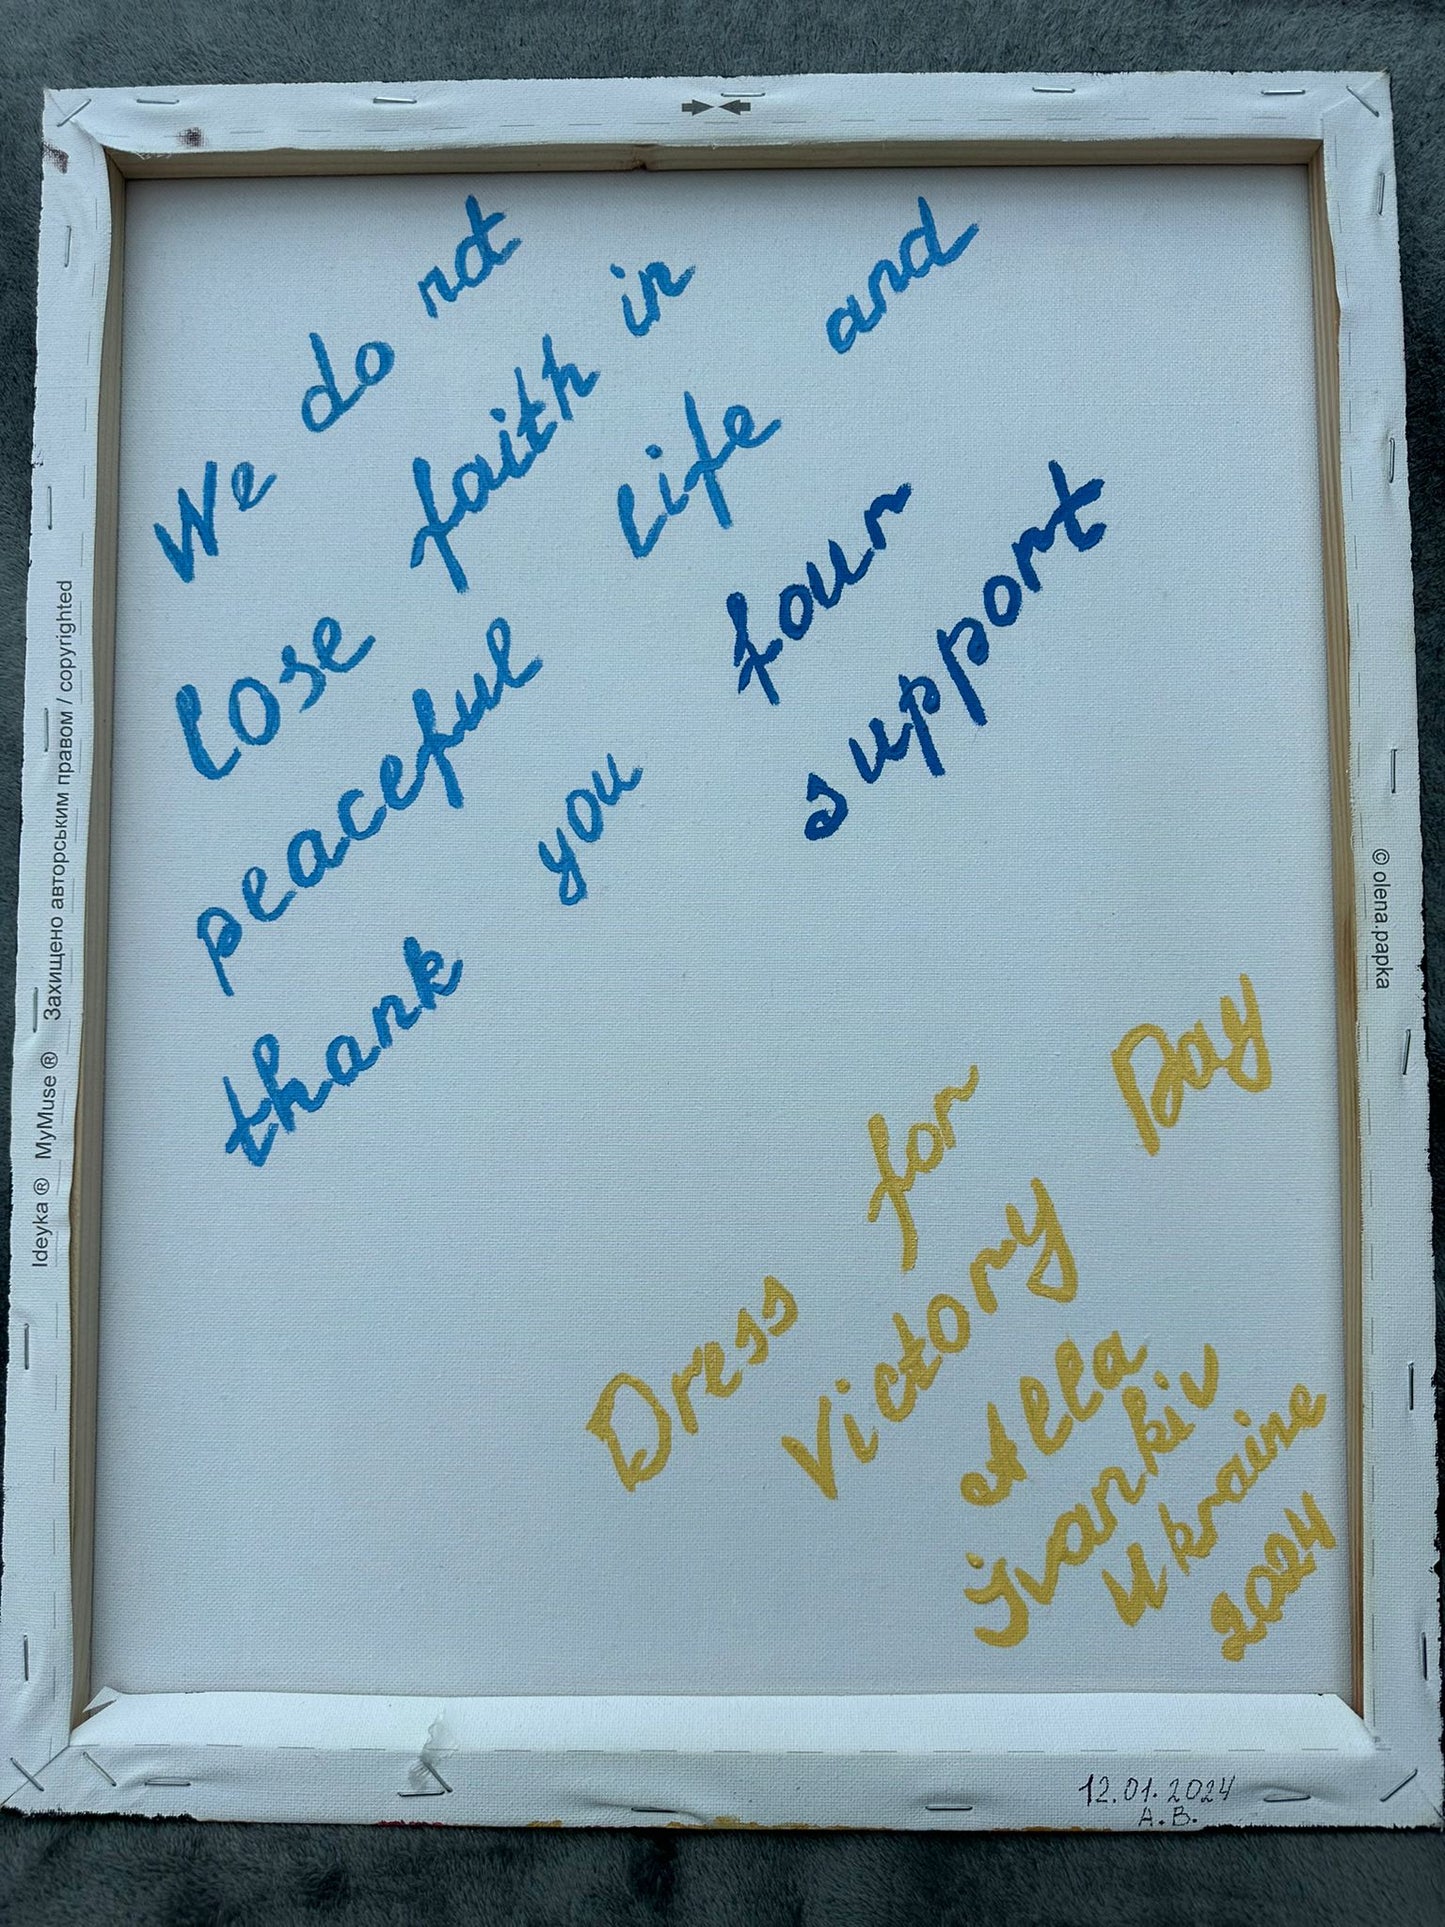 We do not
lose faith in
peaceful life and
thank you four
support
Dress for
Victory Day
Alla
Ivankiv
Ukraine
2024
12.01.2024
A.B.
Ideyka ® MyMuse ® Захищено авторським правом / copyrighted
© olena.papka